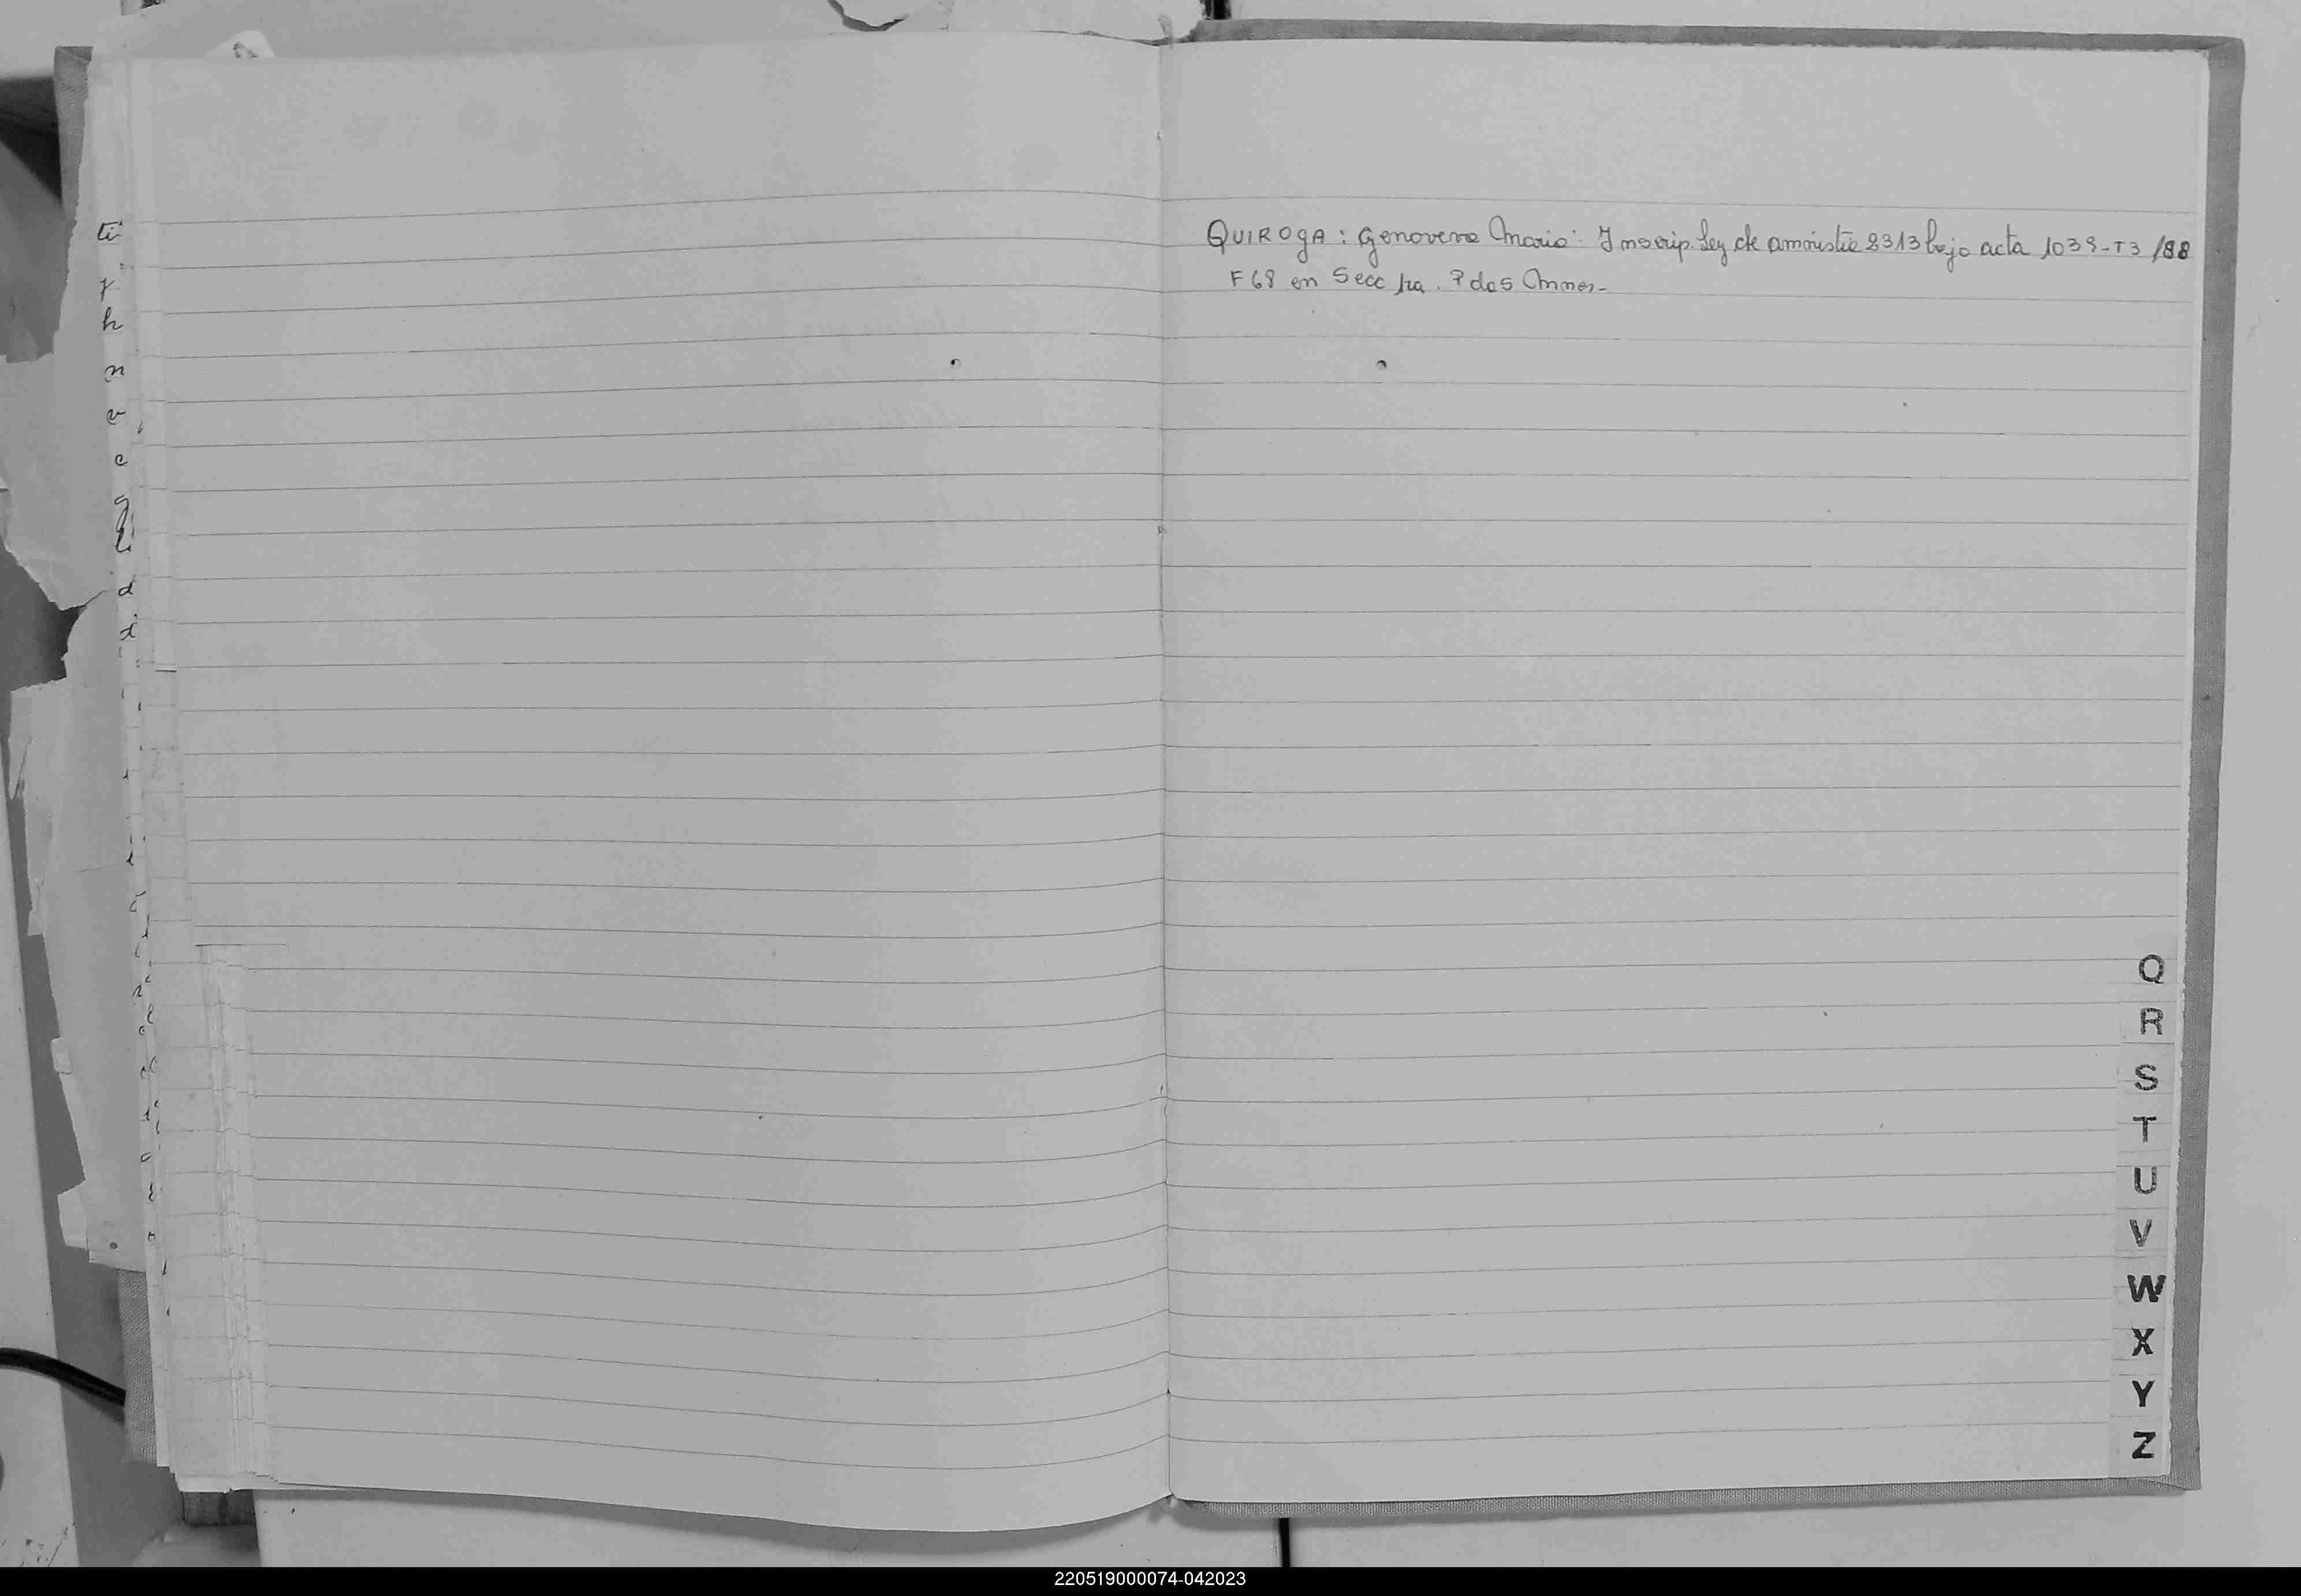 QUIROGA: Genoveva Maria: Inscrip. Ley de amnistia 2313 bajo acta 1039-T3/88
F 68 en Secc 1ra. Pdas
Q
R
S
T
U
V
W
X
Y
Z
220519000074-042023